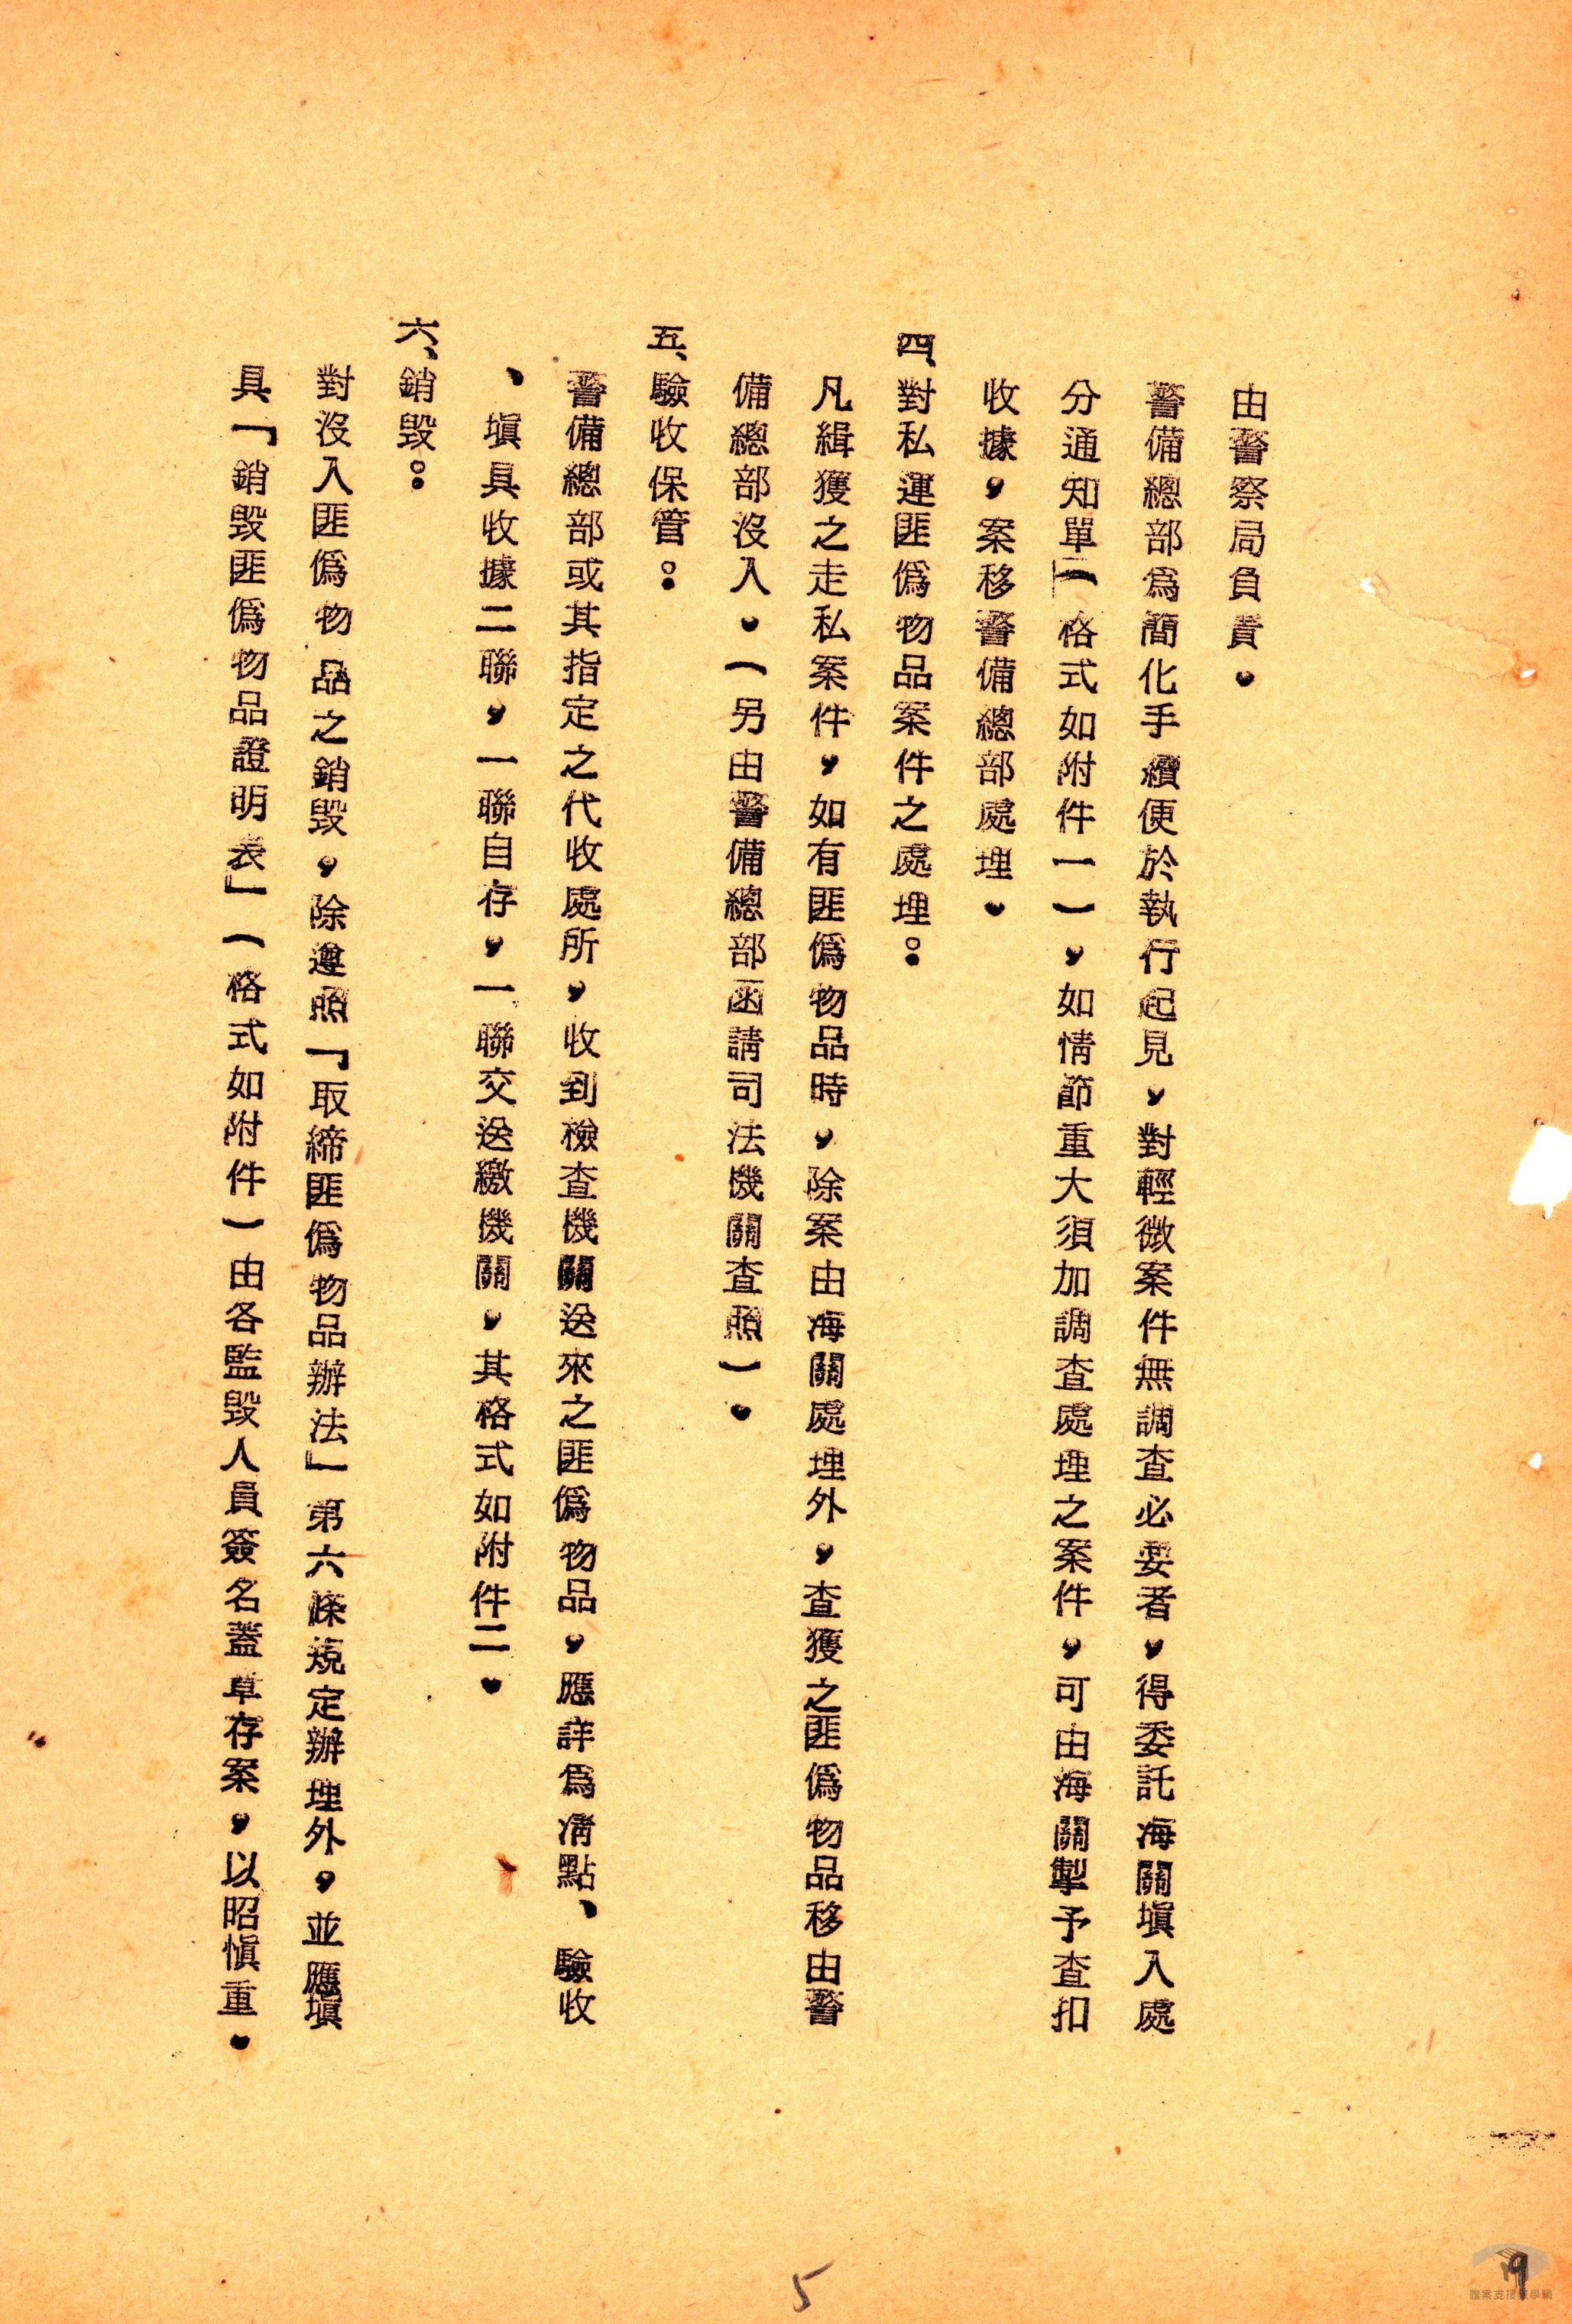 由警察局負責。
警備總部爲簡化手續便於執行起見，對輕微案件無調查必要者，得委託海關塡入處
分通知單（格式如附件一），如情節重大須加調查處理之案件，可由海關掣予查扣
收據，案移警備總部處理。
四、對私運匪僞物品案件之處理：
凡緝獲之走私案件，如有匪僞物品時，除案由海關處理外，查獲之匪僞物品移由警
備總部沒入。（另由警備總部函請司法機關查照）。
五、驗收保管：
警備總部或其指定之代收處所，收到檢查機關送來之匪僞物品，應詳爲清點、驗收
、塡具收據二聯，一聯自存，一聯交送繳機關，其格式如附件二。
六、銷毀：
對沒入匪僞物品之銷毀，除遵照「取締匪僞物品辦法」第六條規定辦理外，並應塡
具「銷毀匪僞物品證明表」（格式如附件）由各監毀人員簽名蓋章存案，以昭愼重。
5
9
檔案支援教學網